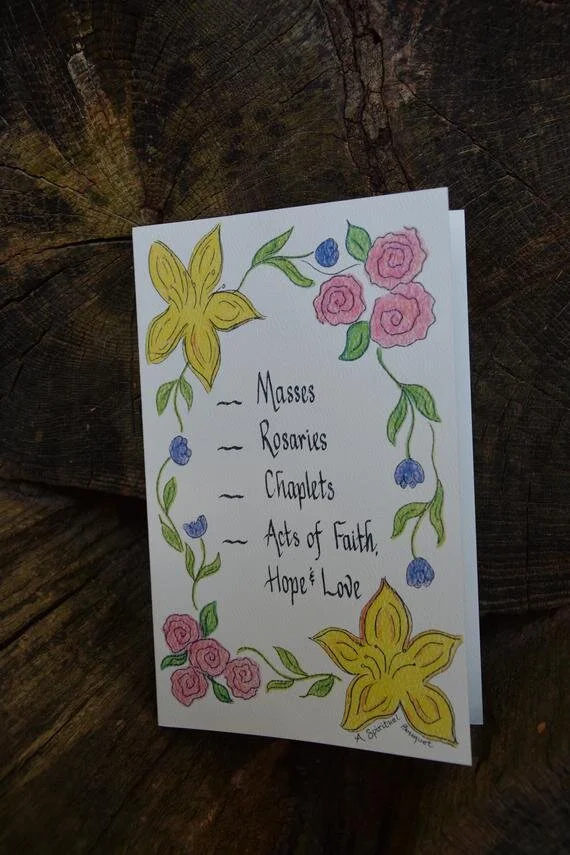 __ Masses
__ Rosaries
__ Chaplets
__ Acts of Faith,
Hope & Love
A Spiritual Bouquet